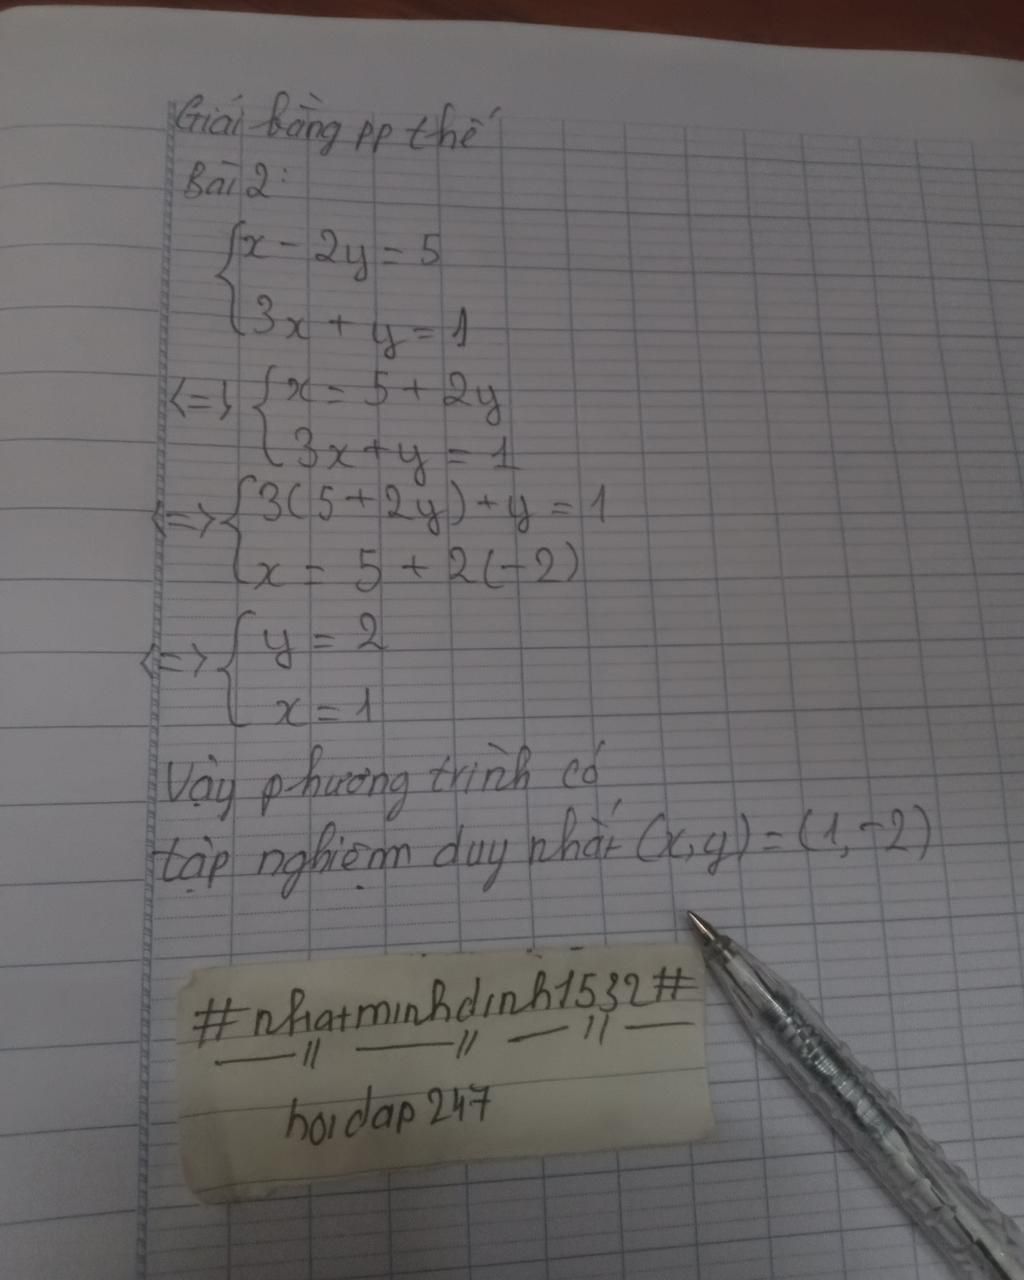 Giải bằng pp thế
Bài 2:
{x - 2y = 5
{3x + y = 1
<=> {x = 5 + 2y
{3x + y = 1
<=> {3(5 + 2y) + y = 1
{x = 5 + 2(-2)
<=> {y = 2
{x = 1
Vậy phương trình có
tập nghiệm duy nhất (x,y) = (1,-2)
#nhatminhdinh1532#
hoidap247